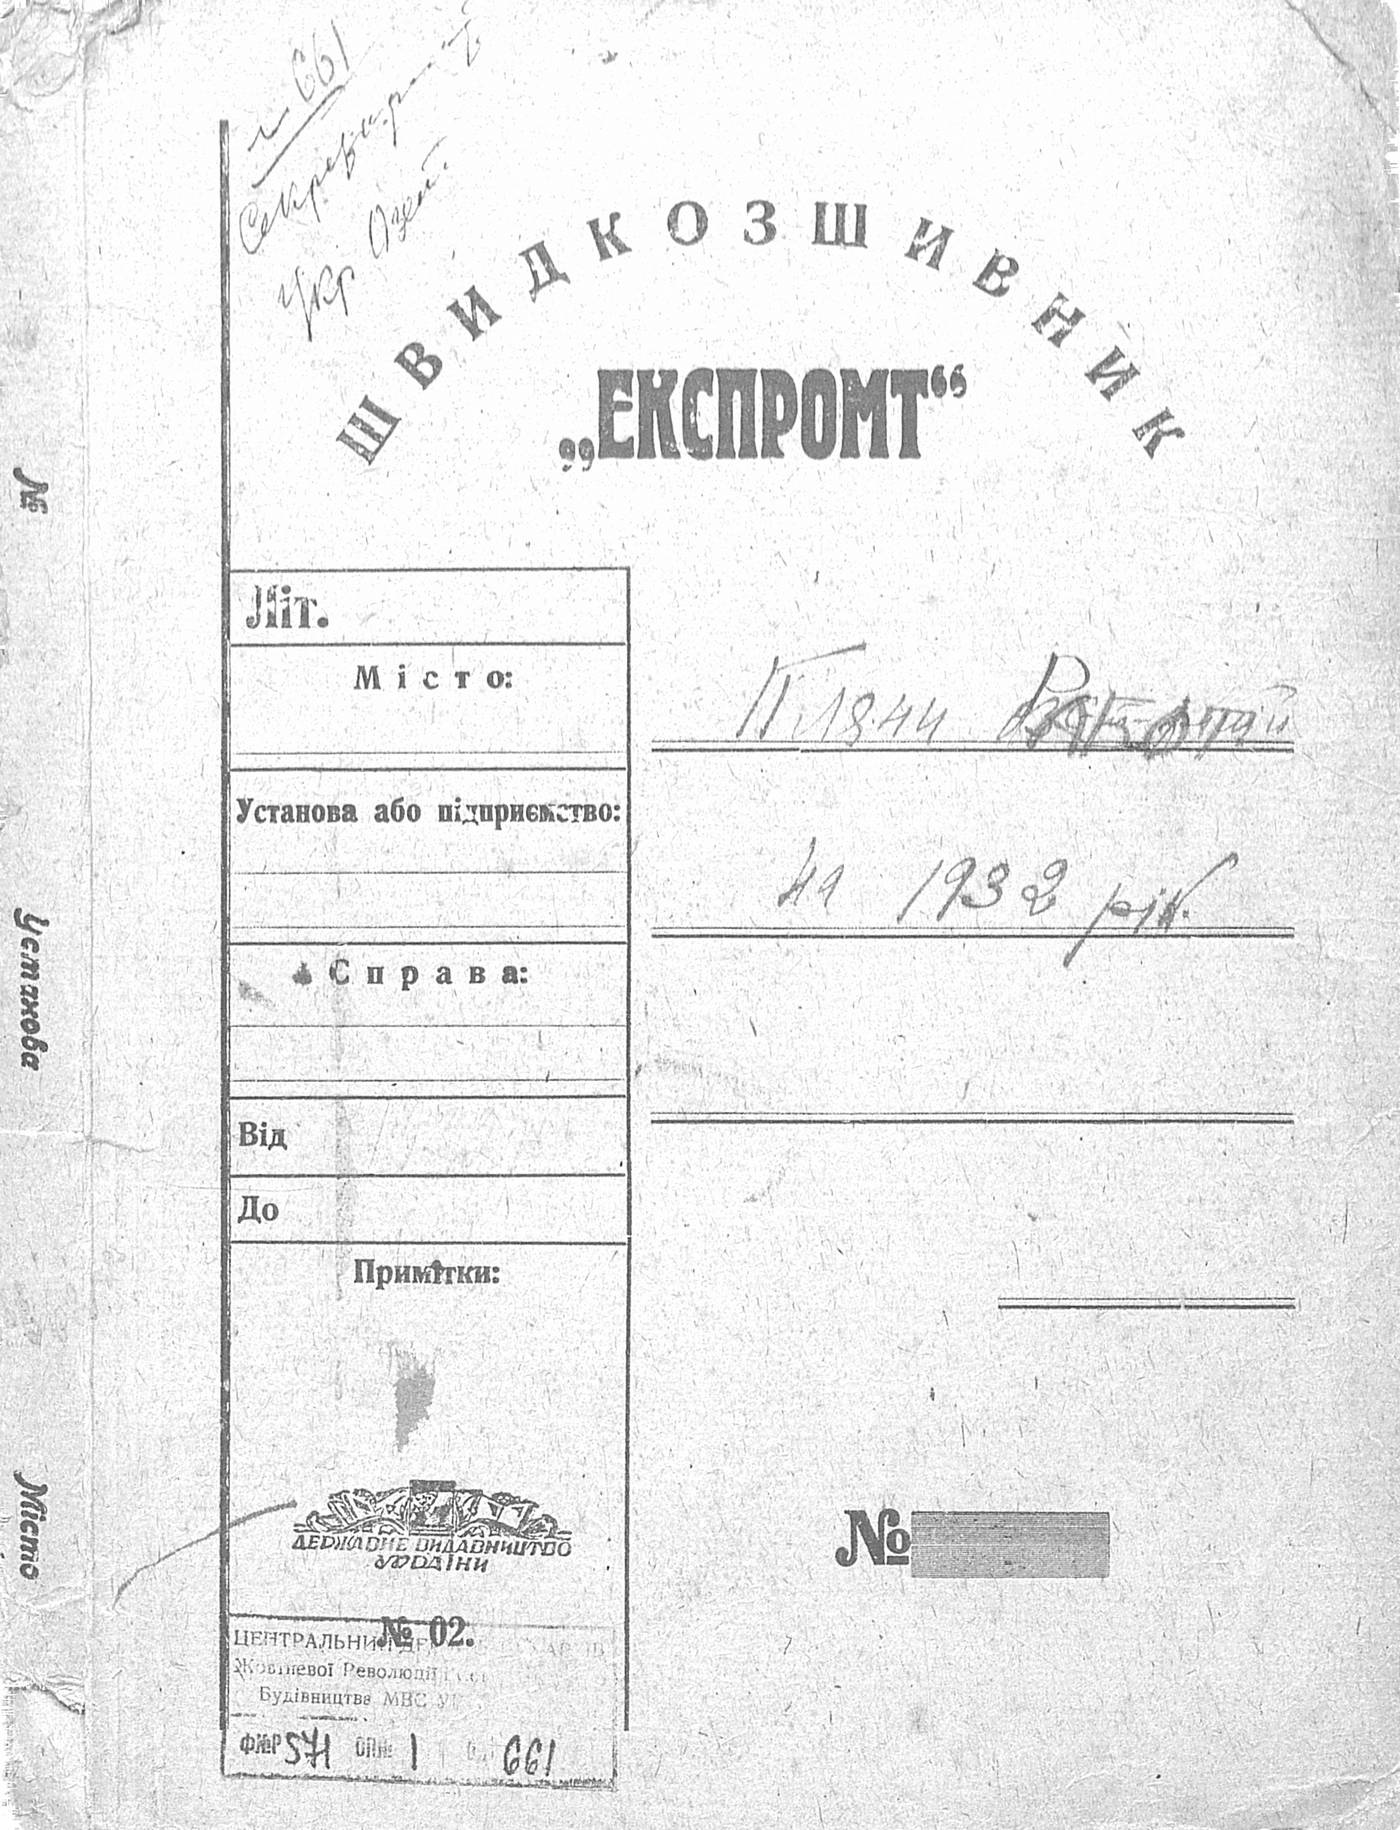 № 661
Секретаріят
Укр Озет.
ШВИДКОЗШИВНИК
„ЕКСПРОМТ“
Літ.
Місто:
Установа або підприємство:
Справа:
Від
До
Примітки:
Пляни
на 1932 рік.
ДЕРЖАВНЕ ВИДАВНИЦТВО
УКРАЇНИ
№ 02.
№
ЦЕНТРАЛЬНИЙ ДЕРЖ АРХІВ
Жовтневої Революції і соц
Будівництва МВС УР
Ф№Р 571 ОП№ 1 661
№
Установа
Місто